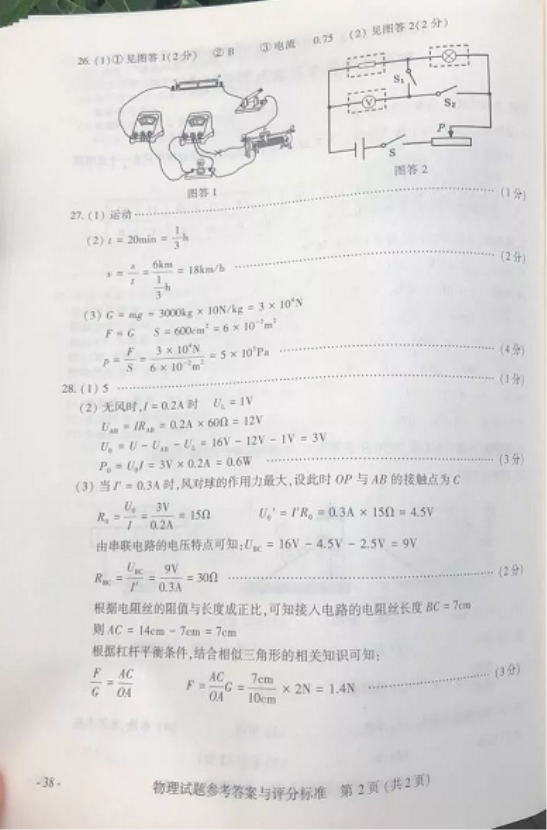 26. (1)① 见图答1(2分) ② B ③ 电流 0.75 (2) 见图答2(2分)
S₁
V
S₂
P
S
图答1
图答2
27. (1) 运动 (1分)
(2) t = 20min = 1/3 h
v = s/t = 6km / (1/3 h) = 18km/h (2分)
(3) G = mg = 3000kg × 10N/kg = 3 × 10⁴N
F = G S = 600cm² = 6 × 10⁻²m²
p = F/S = 3 × 10⁴N / 6 × 10⁻²m² = 5 × 10⁵Pa (4分)
28. (1) 5 (1分)
(2) 无风时,I = 0.2A 时 U_L = 1V
U_AB = IR_AB = 0.2A × 60Ω = 12V
U₀ = U − U_AB − U_L = 16V − 12V − 1V = 3V
P₀ = U₀I = 3V × 0.2A = 0.6W (3分)
(3) 当 I′ = 0.3A 时,风对球的作用力最大,设此时 OP 与 AB 的接触点为 C
R₀ = U₀/I = 3V/0.2A = 15Ω U₀′ = I′R₀ = 0.3A × 15Ω = 4.5V
由串联电路的电压特点可知:U_BC = 16V − 4.5V − 2.5V = 9V
R_BC = U_BC/I′ = 9V/0.3A = 30Ω (2分)
根据电阻丝的阻值与长度成正比,可知接入电路的电阻丝长度 BC = 7cm
则 AC = 14cm − 7cm = 7cm
根据杠杆平衡条件,结合相似三角形的相关知识可知:
F/G = AC/OA F = AC/OA G = 7cm/10cm × 2N = 1.4N (3分)
· 38 ·
物理试题参考答案与评分标准 第2页(共2页)